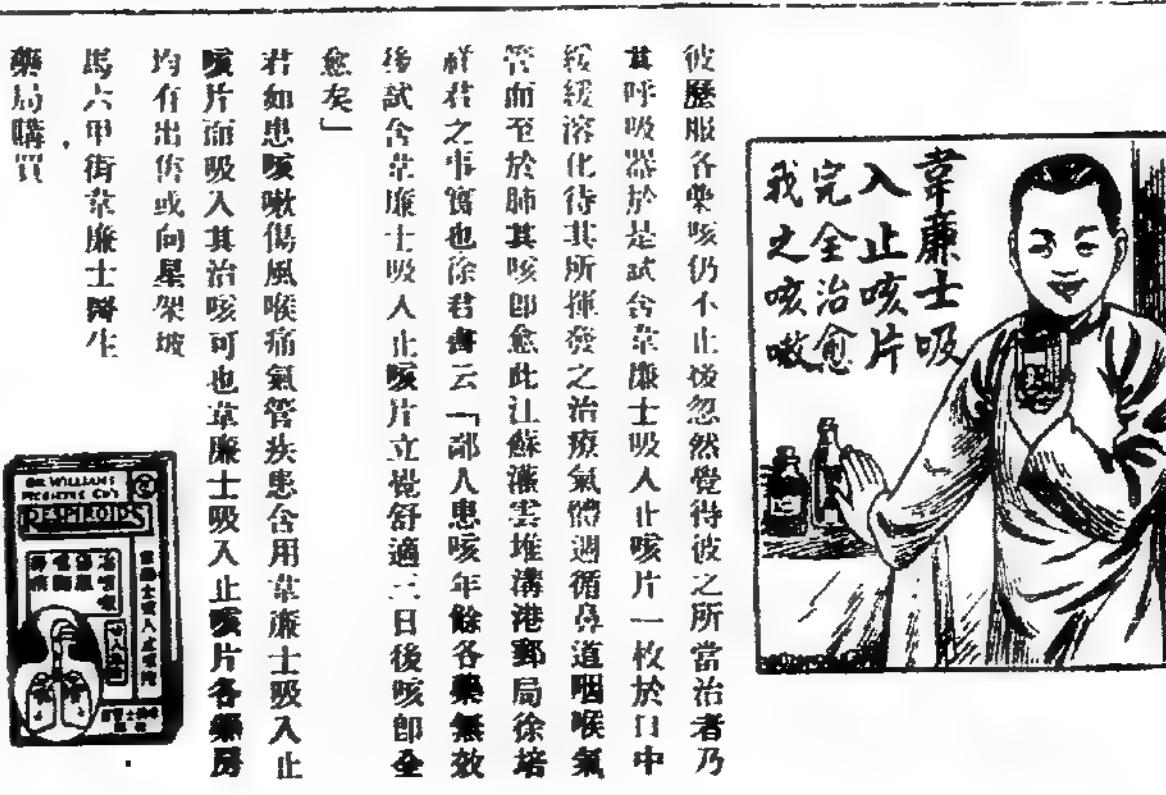 韋廉士吸
入止咳片
完全治愈
我之咳嗽
彼歷服各藥咳仍不止後忽然覺得彼之所當治者乃
其呼吸器於是試含韋廉士吸入止咳片一枚於口中
緩緩溶化待其所揮發之治療氣體週循鼻道咽喉氣
管而至於肺其咳卽愈此江蘇灌雲堆溝港郵局徐培
祥君之事實也徐君書云「鄙人患咳年餘各藥無效
後試含韋廉士吸入止咳片立覺舒適三日後咳卽全
愈矣」
君如患咳嗽傷風喉痛氣管疾患含用韋廉士吸入止
咳片而吸入其治咳可也韋廉士吸入止咳片各藥房
均有出售或向星架坡
馬六甲街韋廉士醫生
藥局購買
DR. WILLIAMS
MEDICINE CO'S
RESPIROIDS
韋廉士吸入止咳片